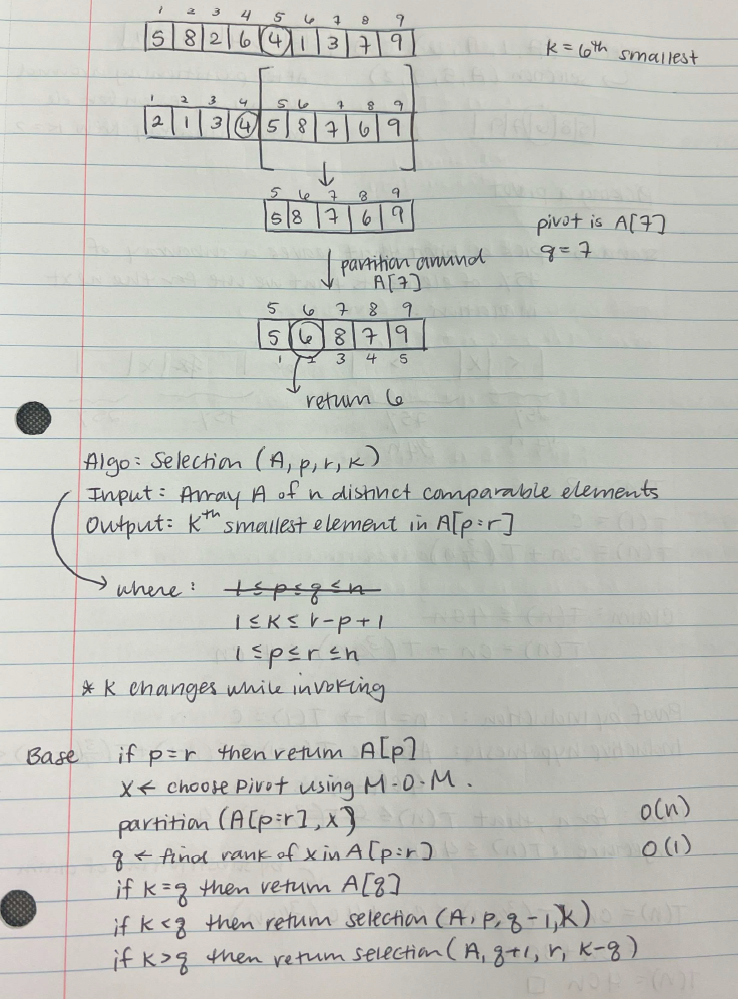 1 2 3 4 5 6 7 8 9
5 8 2 6 4 1 3 7 9
K = 6th smallest
1 2 3 4 5 6 7 8 9
2 1 3 4 5 8 7 6 9
5 6 7 8 9
5 8 7 6 9
pivot is A[7]
q = 7
partition around
A[7]
5 6 7 8 9
5 6 8 7 9
1 2 3 4 5
return 6
Algo: Selection (A, p, r, k)
Input: Array A of n distinct comparable elements
Output: Kth smallest element in A[p:r]
where: 1 ≤ p ≤ q ≤ n
1 ≤ K ≤ r-p+1
1 ≤ p ≤ r ≤ n
* K changes while invoking
Base if p=r then return A[p]
x ← choose pivot using M.O.M.
partition (A[p:r], x) O(n)
q ← find rank of x in A[p:r] O(1)
if k=q then return A[q]
if k<q then return selection (A, p, q-1, k)
if k>q then return selection (A, q+1, r, k-q)